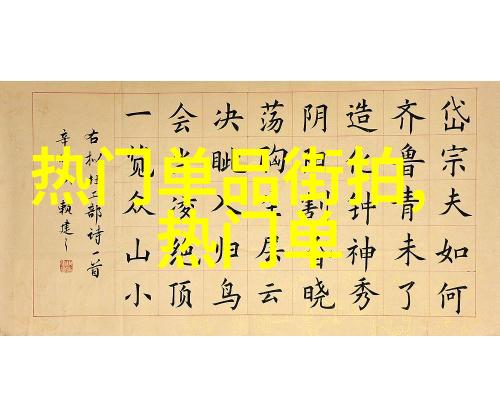 热门单品街拍,
热门单
岱宗夫如何
齐鲁青未了
造化钟神秀
阴阳割昏晓
荡胸生层云
决眦入归鸟
会当凌绝顶
一览众山小
右杜工部诗一首
辛 赖建